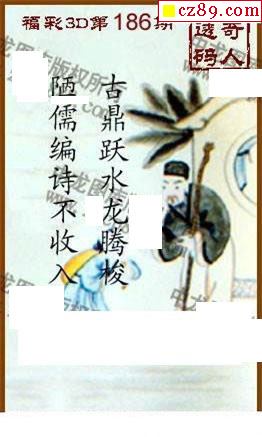 cz89.com
福彩3D第186期
奇人
透码
古鼎跃水龙腾梭
陋儒编诗不收入